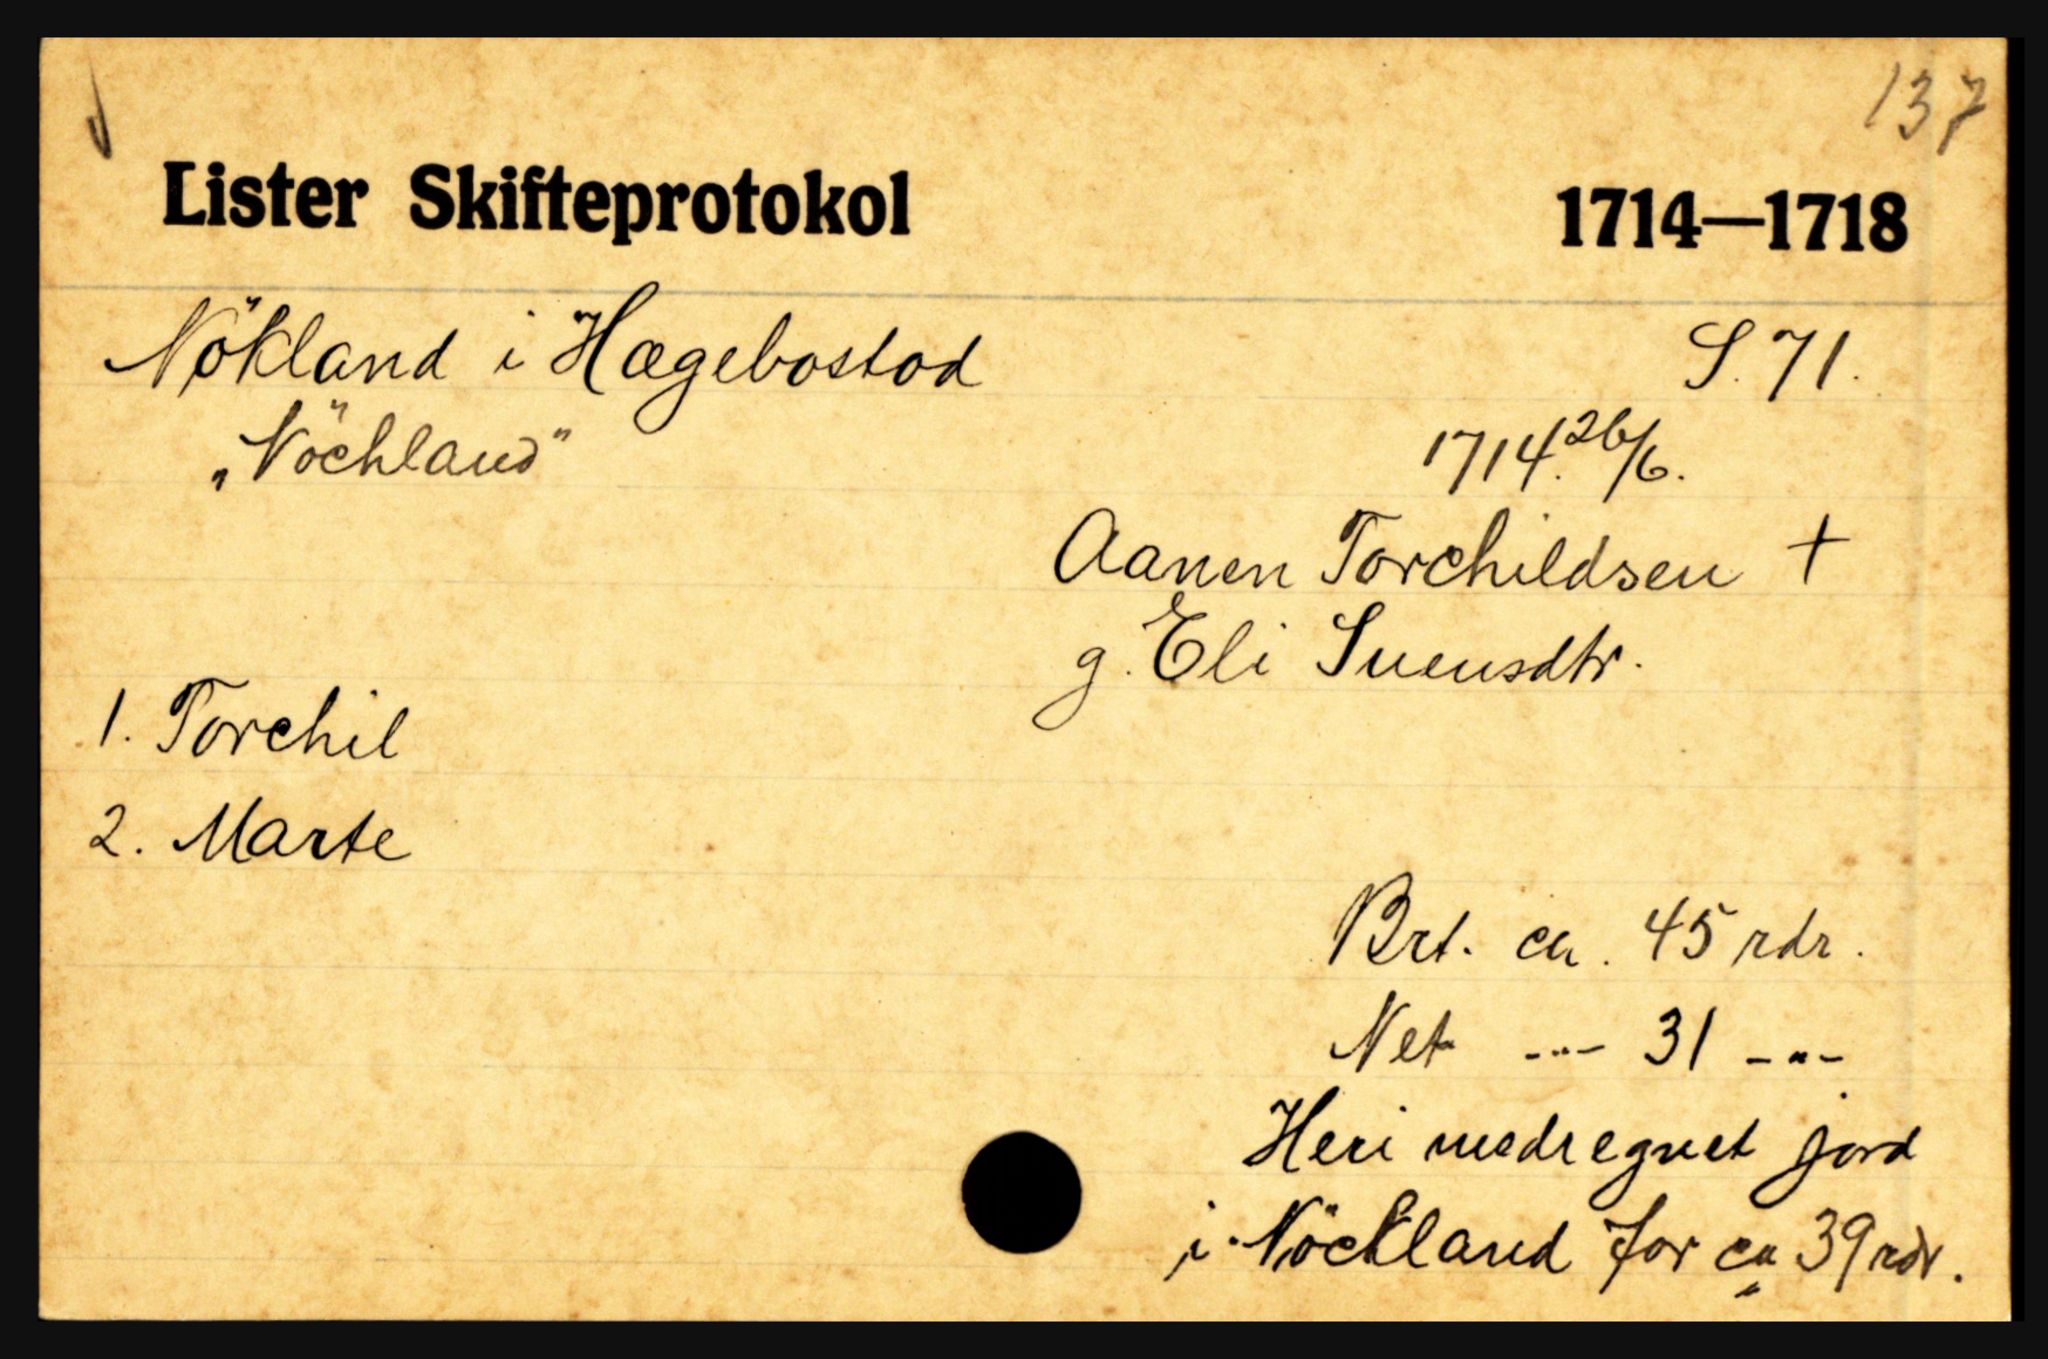 137
Lister Skifteprotokol 1714—1718
Nökland i Hægebostad S. 71.
„Nöchland" 1714. 26/6.
Aanen Torchildsen +
g. Eli Suensdtr.
1. Torchil
2. Marte
Brt. ca. 45 rdr.
Net -"- 31 -"-
Heri medregnet jord
i Nöckland for ca 39 rdr.